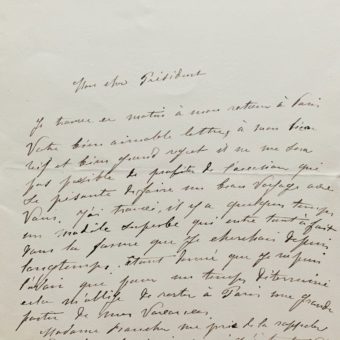 Mon cher Président
Je trouve ce matin à mon retour à Paris
Votre bien aimable lettre, à mon bien
vif et bien grand regret il ne me sera
pas possible de profiter de l'occasion qui
Se présente de faire un beau Voyage avec
Vous. J'ai trouvé, il y a quelques temps
un modèle superbe qui entre tout à fait
dans la forme que je cherchais depuis
longtemps, étant donné que je
l'avoir que pour un temps déterminé
cela m'oblige de rester à Paris une grande
partie de mes Vacances.
Madame me prie de la rappeler